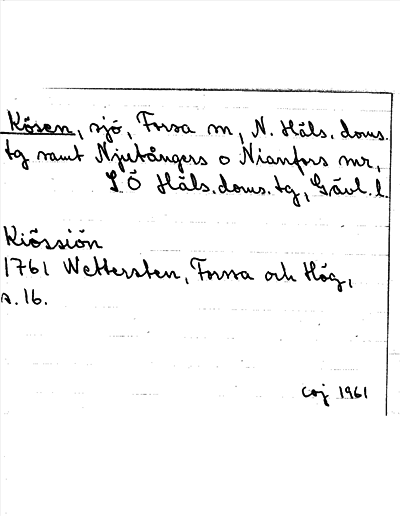 Kösen, sjö, Forsa sn, N. Häls. doms.
tg samt Njutångers o Nianfors snr,
S Ö Häls. doms. tg, Gävl. l.
Kiössiön
1761 Wettersten, Forssa och Hög,
s. 16.
CGJ 1961